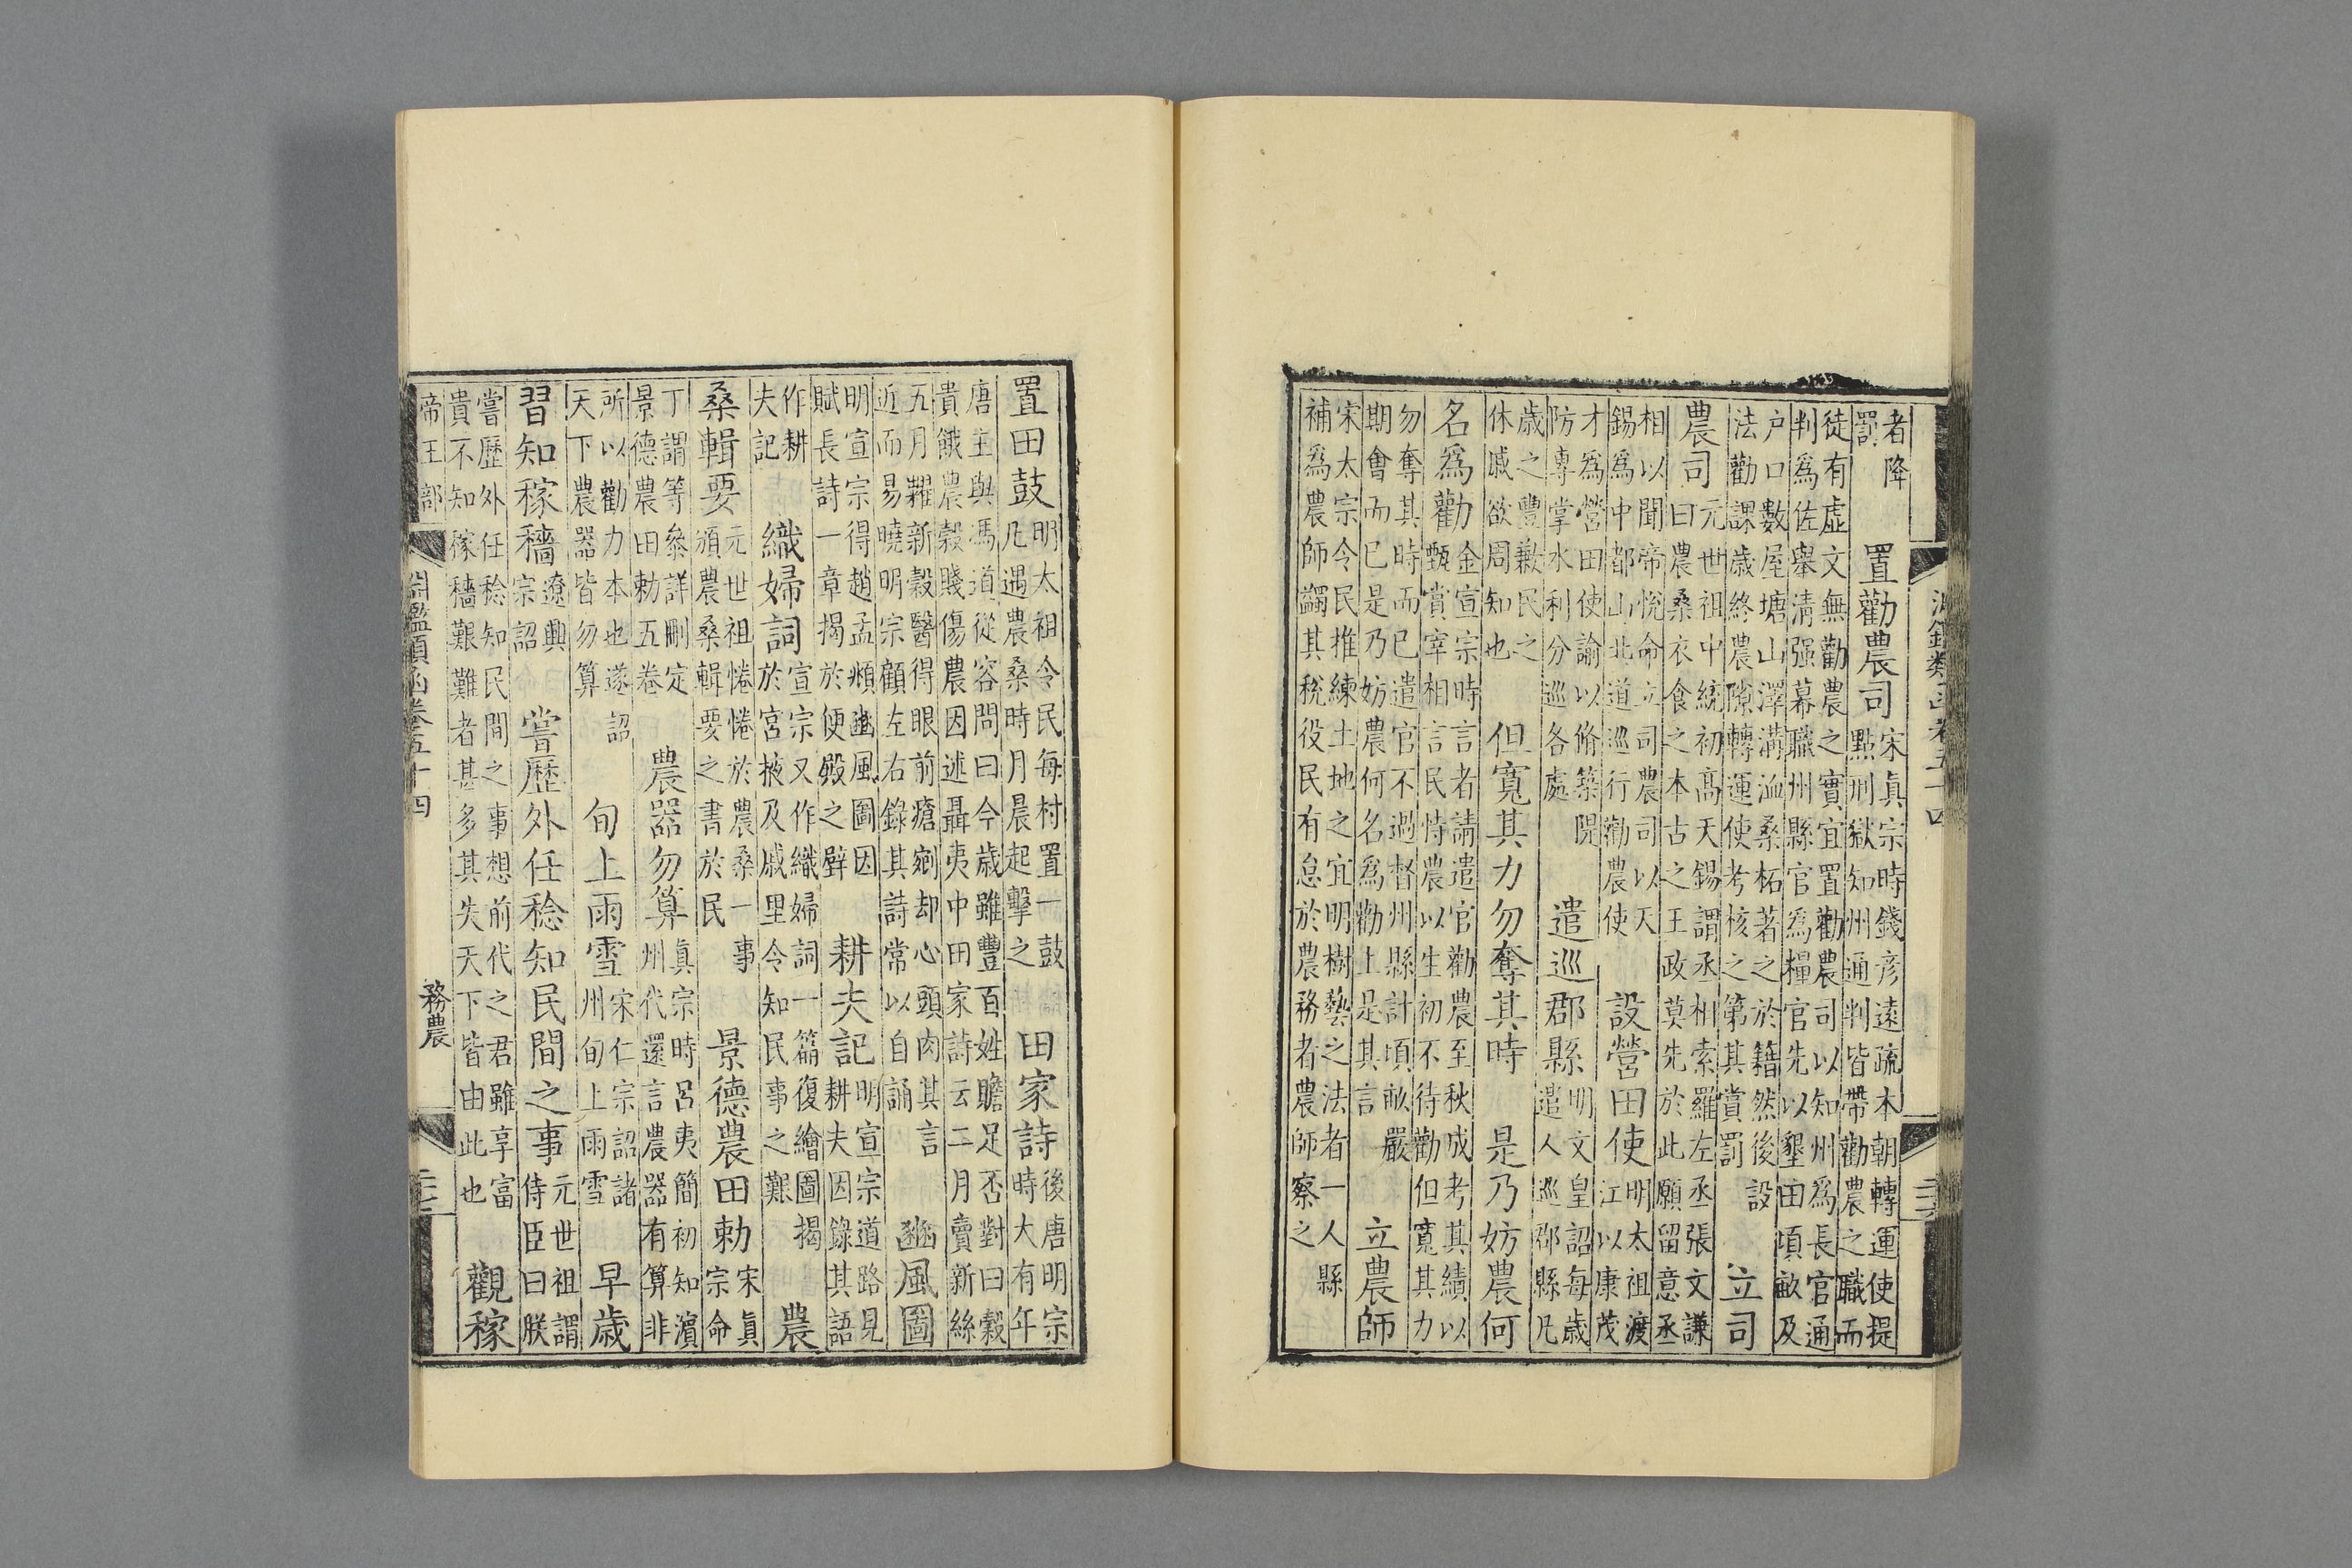 者降罰　置勸農司宋真宗時錢彦遠疏本朝轉運使提點刑獄知州通判皆帶勸農之職而
徒有虛文無勸農之實宜置勸農司以知州爲長官通判爲佐舉清强幕職州縣官爲糧官先以墾田頃畝及
户口數屋塘山澤溝洫桑柘著之於籍然後設法勸課歲終農隙轉運使考核之第其賞罰　立司
農司元世祖中統初髙天錫謂丞相索羅左丞張文謙曰農桑衣食之本古之王政莫先於此願留意丞
相以聞帝悅命立司農司以天錫爲中都山北道巡行勸農使　設營田使明太祖渡江以康茂
才爲營田使諭以脩築隄防專掌水利分巡各處　遣巡郡縣明文皇詔每歲遣人巡郡縣凡
歲之豐歉民之休戚欲周知也　但寬其力勿奪其時　是乃妨農何
名爲勸金宣宗時言者請遣官勸農至秋成考其績以甄賞宰相言民恃農以生初不待勸但寬其力
勿奪其時而已遣官不過督州縣計頃畝嚴期會而已是乃妨農何名爲勸上是其言　立農師
宋太宗令民推練土地之宜明樹藝之法者一人縣補爲農師蠲其稅役民有怠於農務者農師察之
置田鼓明太祖令民每村置一鼓凡遇農桑時月晨起擊之　田家詩後唐明宗時大有年
唐主與馮道從容問曰今歲雖豐百姓贍足否對曰穀貴餓農穀賤傷農因述聶夷中田家詩云二月賣新絲
五月糶新穀醫得眼前瘡剜却心頭肉其言近而易曉明宗顧左右錄其詩常以自誦　豳風圖
明宣宗得趙孟頫豳風圖因賦長詩一章揭於便殿之壁　耕夫記明宣宗道路見耕夫因錄其語
作耕夫記　織婦詞宣宗又作織婦詞一篇復繪圖揭於宮掖及戚里令知民事之艱　農
桑輯要元世祖惓惓於農桑一事頒農桑輯要之書於民　景德農田勅宋真宗命
丁謂等叅詳刪定景德農田勅五卷　農器勿算真宗時呂夷簡初知濱州代還言農器有算非
所以勸力本也遂詔天下農器皆勿算　旬上雨雪宋仁宗詔諸州旬上雨雪　早歲
習知稼穡遼興宗詔　嘗歷外任稔知民間之事元世祖謂侍臣曰朕
嘗歷外任稔知民間之事想前代之君雖享富貴不知稼穡艱難者甚多其失天下皆由此也　觀稼
帝王部　淵鑑類函卷五十四　務農